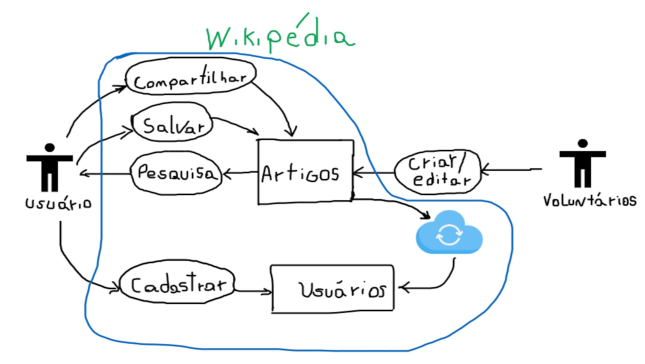 Wikipédia
Compartilhar
Salvar
Pesquisa
Artigos
Criar/
editar
usuário
Voluntários
Cadastrar
Usuários